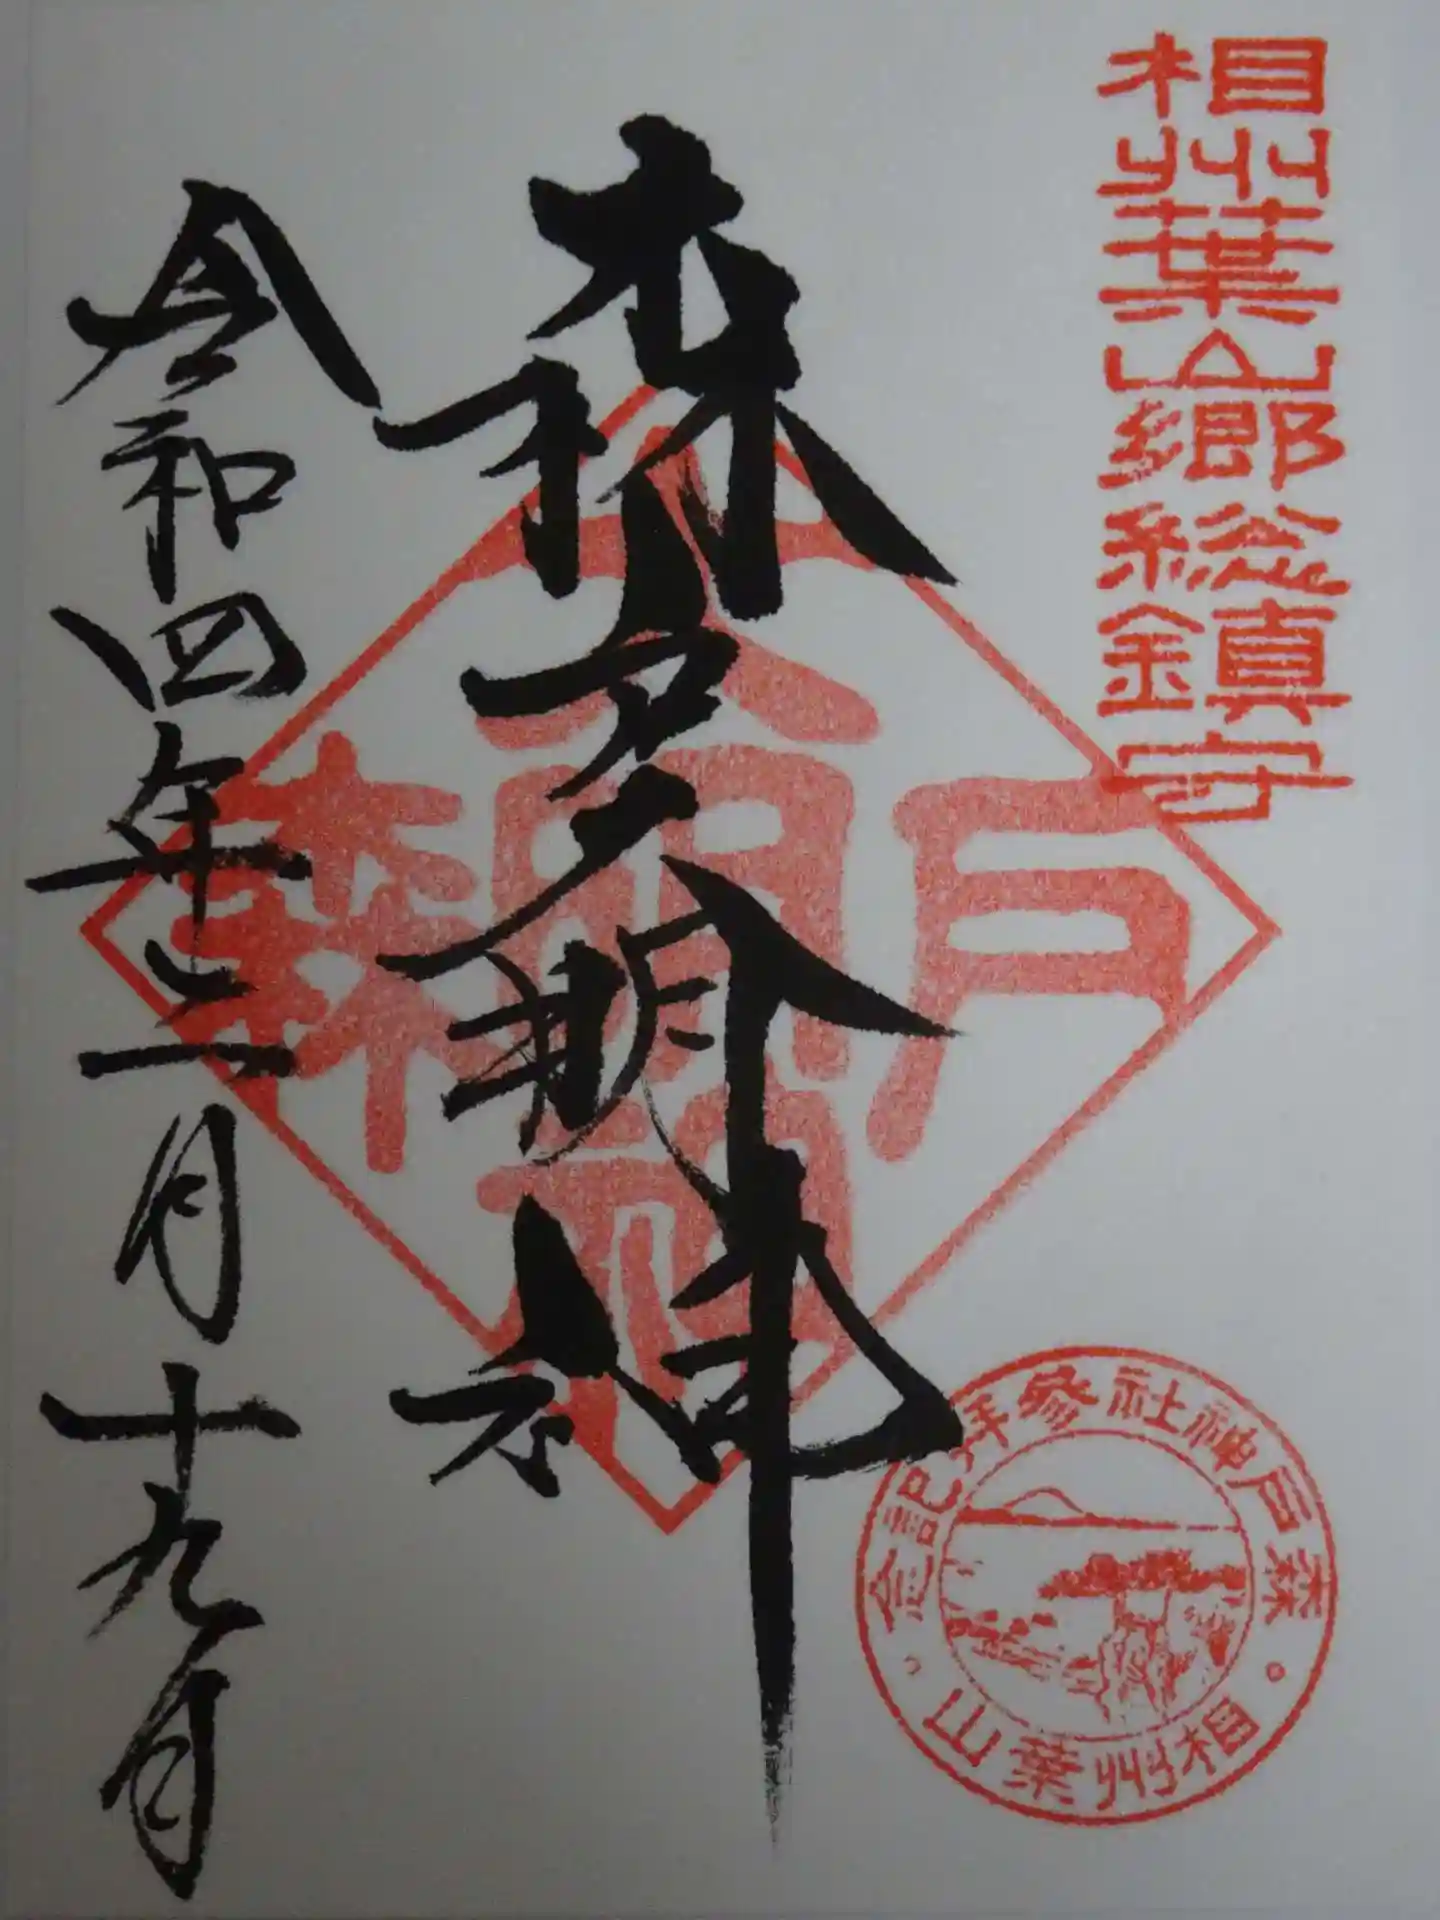 相州葉山郷総鎮守
森戸大明神
令和四年二月十九日
森戸大明神
森戸神社参拝記念
相州葉山